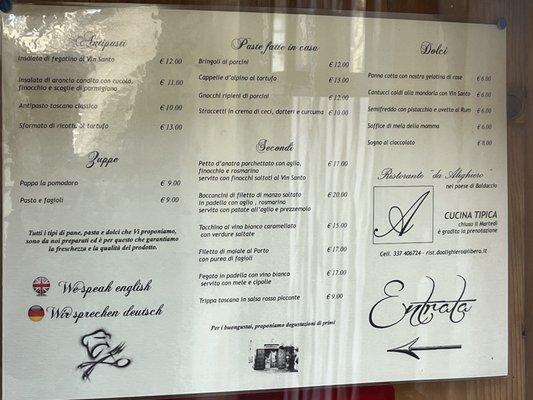 Antipasti
Insalata di fegatino al Vin Santo € 12.00
Insalata di arancio condita con rucola,
finocchio e scaglie di parmigiano € 11.00
Antipasto toscano classico € 10.00
Sformato di ricotta al tartufo € 13.00
Zuppe
Pappa la pomodoro € 9.00
Pasta e fagioli € 9.00
Tutti i tipi di pane, pasta e dolci che Vi proponiamo,
sono da noi preparati ed è per questo che garantiamo
la freschezza e la qualità del prodotto.
We speak english
Wir sprechen deutsch
Paste fatte in casa
Bringoli ai porcini € 12.00
Cappelle d'alpino al tartufo € 13.00
Gnocchi ripieni di porcini € 12.00
Straccetti in crema di ceci, datteri e curcuma € 10.00
Secondi
Petto d'anatra porchettato con aglio, € 17.00
finocchio e rosmarino
servito con finocchi saltati al Vin Santo
Bocconcini di filetto di manzo saltato € 20.00
in padella con aglio , rosmarino
servito con patate all'aglio e prezzemolo
Tacchino al vino bianco caramellato € 15.00
con verdure saltate
Filetto di maiale al Porto € 17.00
con purea di fagioli
Fegato in padella con vino bianco € 17.00
servito con mele e cipolle
Trippa toscana in salsa rossa piccante € 9.00
Per i buongustai, proponiamo degustazioni di primi
Dolci
Panna cotta con nostra gelatina di rose € 6.00
Cantucci caldi alla mandorla con Vin Santo € 6.00
Semifreddo con pistacchio e uvetta al Rum € 6.00
Soffice di mela della mamma € 6.00
Sogno al cioccolato € 8.00
Ristorante "da Alighiero"
nel paese di Baldaccio
A
CUCINA TIPICA
chiuso il Martedì
è gradita la prenotazione
Cell. 337 406724 - rist.daalighiero@libero.it
Entrata